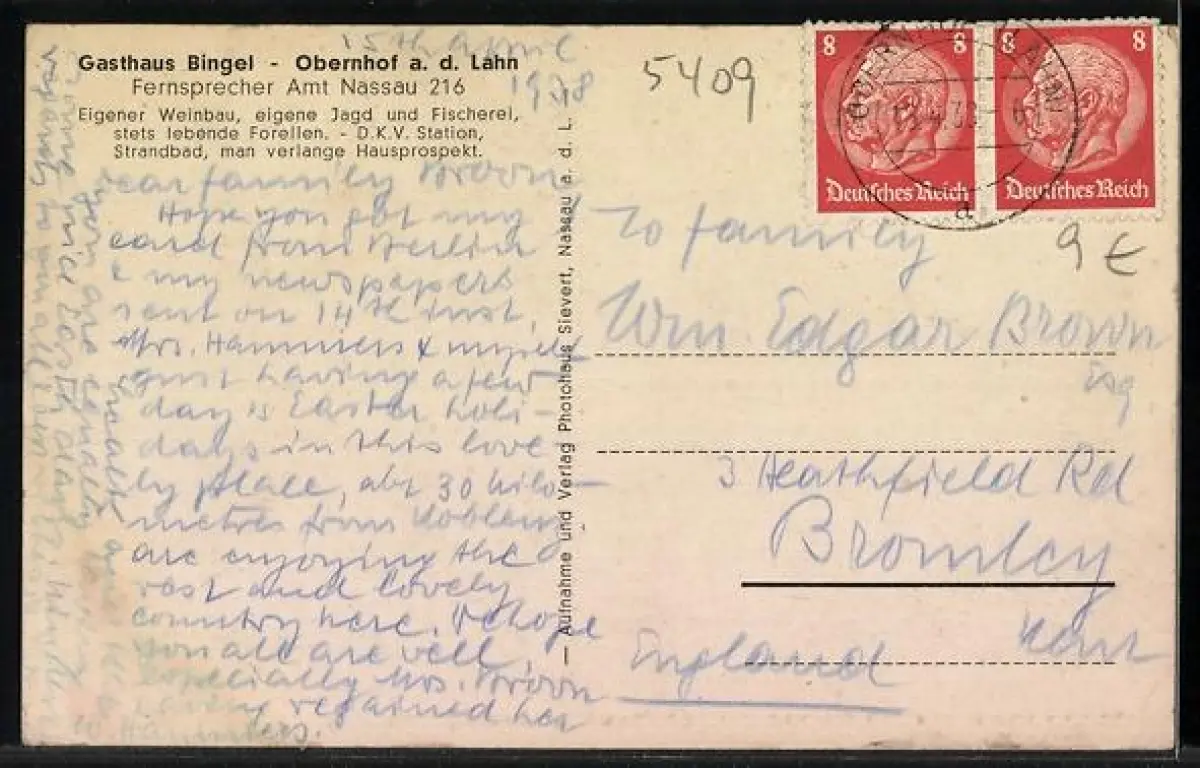 15th April
1938
Gasthaus Bingel - Obernhof a. d. Lahn
Fernsprecher Amt Nassau 216
Eigener Weinbau, eigene Jagd und Fischerei,
stets lebende Forellen. - D.K.V. Station,
Strandbad, man verlange Hausprospekt.
Dear family Brown
Hope you got my
card from Berlin
& my newspapers
sent on 14th inst.
Mrs. Hammers & myself
having a few
day's Easter holi-
days in this love
ly place, abt 30 kilo-
metres from Koblenz
are enjoying the
rest and lovely
country here. We hope
you all are well,
especially Mrs. Brown
having regained her
health
Hammers.
— Aufnahme und Verlag Photohaus Sievert, Nassau a. d. L.
5409
8 8
Deutsches Reich
8 8
Deutsches Reich
a
9 €
To family
Wm. Edgar Brown
Esq
3 Heathfield Rd
Bromley
Kent
England